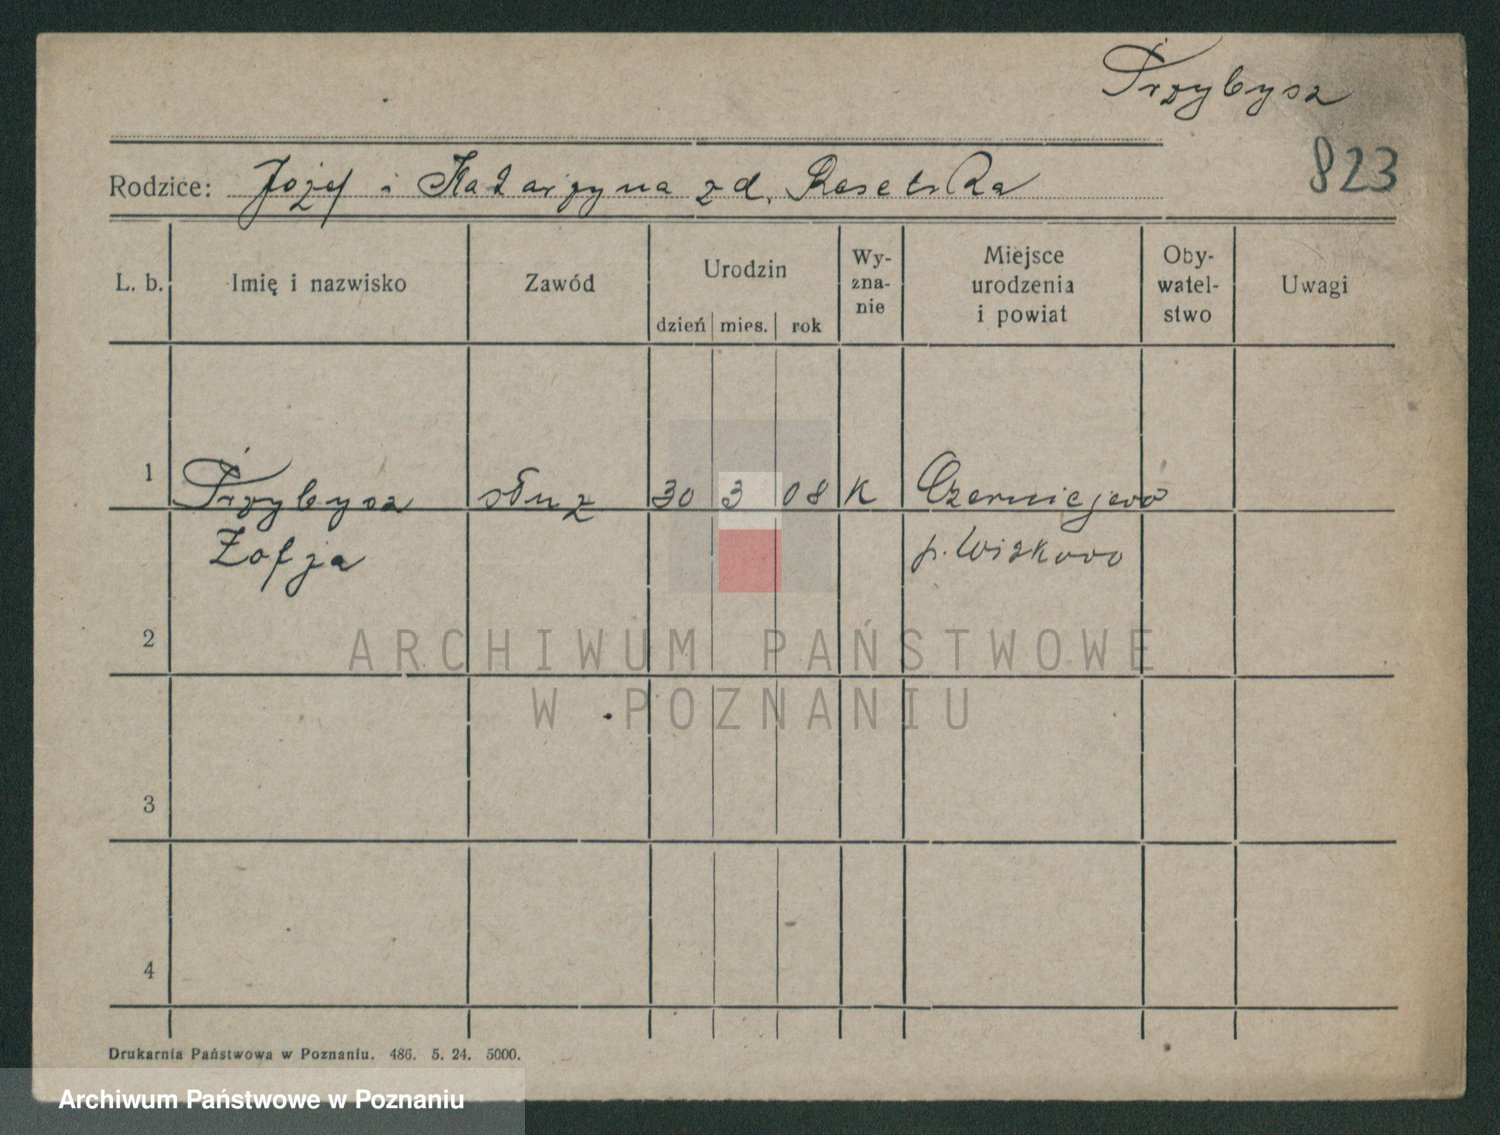 Przybysz
823
Rodzice: Józef i Katarzyna zd.
L. b. Imię i nazwisko Zawód Urodzin dzień mies. rok Wy-zna-nie Miejsce urodzenia i powiat Oby-watel-stwo Uwagi
1 Przybysz służ 30 3 08 K Czerniejewo
Zofja p. Witkowo
2
ARCHIWUM PAŃSTWOWE
W POZNANIU
3
4
Drukarnia Państwowa w Poznaniu. 486. 5. 24. 5000.
Archiwum Państwowe w Poznaniu